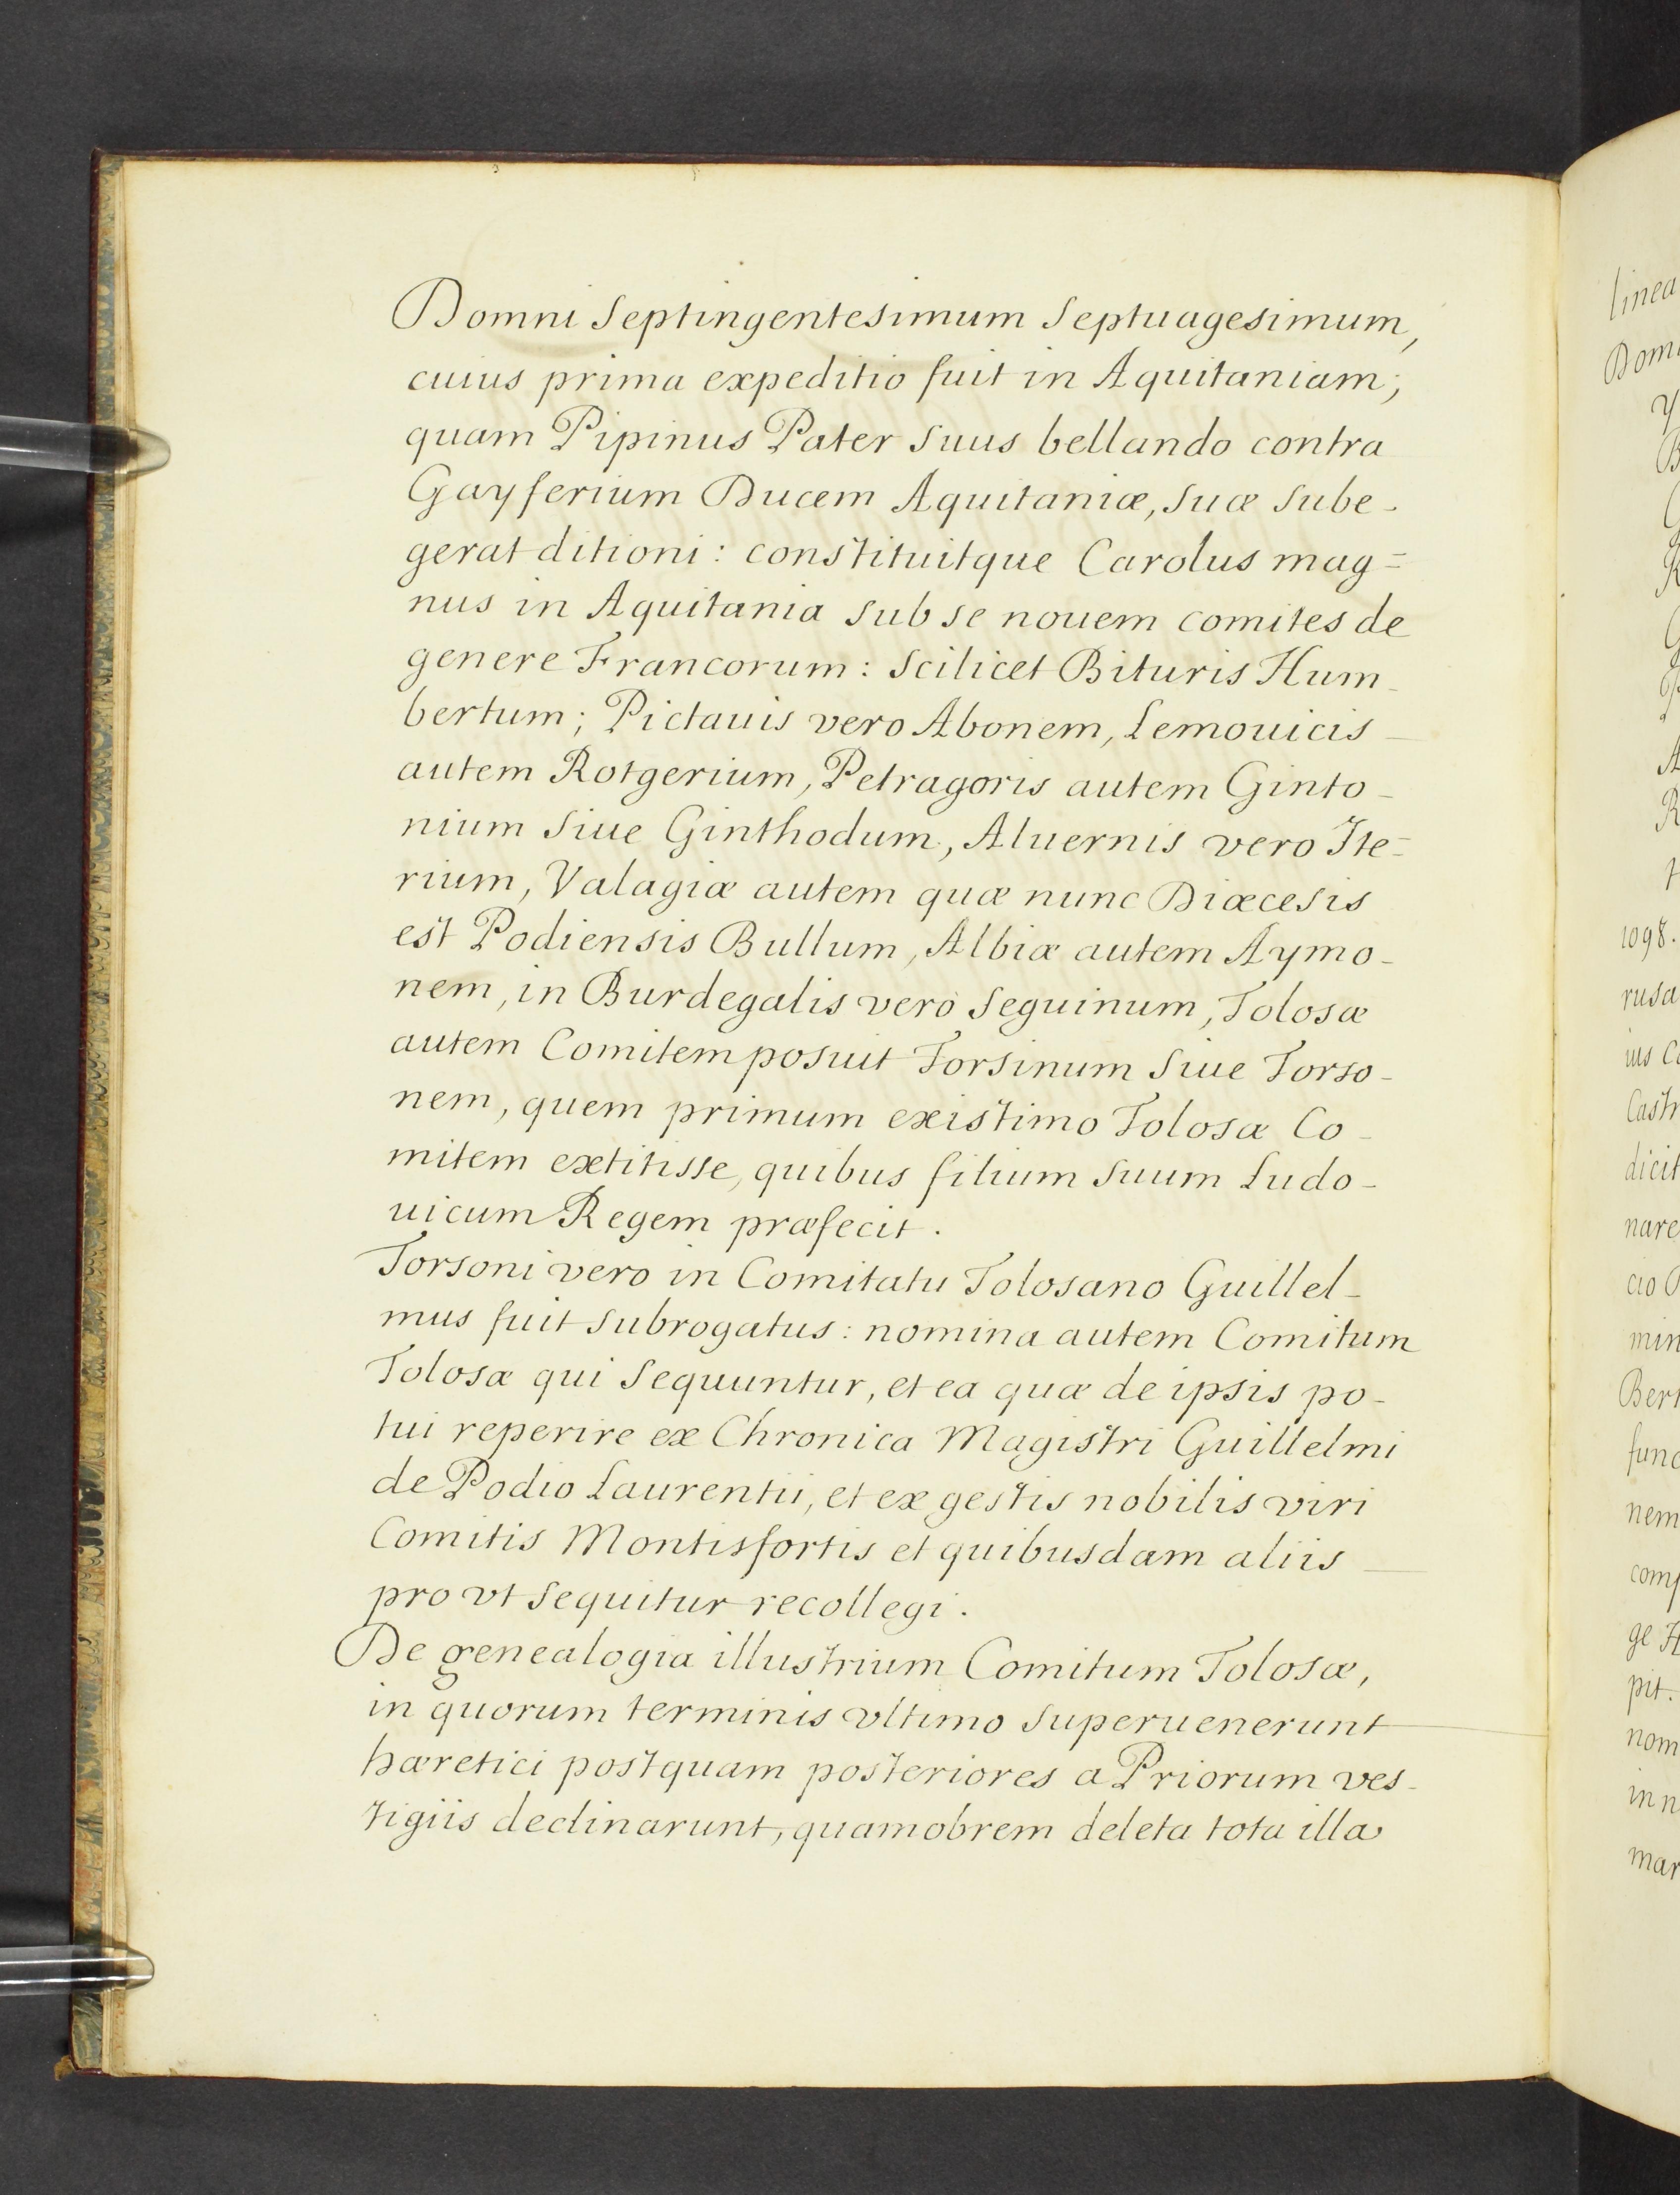 Domni Septingentesimum Septuagesimum,
cuius prima expeditio fuit in Aquitaniam;
quam Pipinus Pater suus bellando contra
Gayferium Ducem Aquitaniæ, suæ sube-
gerat ditioni: constituitque Carolus mag=
nus in Aquitania sub se nouem comites de
genere Francorum: scilicet Bituris Hum-
bertum; Pictauis vero Abonem, Lemouicis
autem Rotgerium, Petragoris autem Ginto-
nium siue Ginthodum, Aluernis vero Ite-
rium, Valagiæ autem quæ nunc Diæcesis
est Podiensis Bullum, Albiæ autem Aymo-
nem, in Burdegalis vero Seguinum, Tolosæ
autem Comitem posuit Torsinum siue Torso-
nem, quem primum existimo Tolosæ Co-
mitem extitisse, quibus filium suum Ludo-
uicum Regem præfecit.
Torsoni vero in Comitatu Tolosano Guillel-
mus fuit subrogatus: nomina autem Comitum
Tolosæ qui sequuntur, et ea quæ de ipsis po-
tui reperire ex Chronica Magistri Guillelmi
de Podio Laurentii, et ex gestis nobilis viri
Comitis Montisfortis et quibusdam aliis
pro vt sequitur recollegi.
De genealogia illustrium Comitum Tolosæ,
in quorum terminis vltimo superuenerunt
hæretici postquam posteriores a Priorum ves-
tigiis declinarunt, quamobrem deleta tota illa
linea
1098.